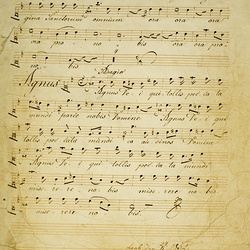 gina Sanctorum omnium ora ora ora
ora pro no bis ora ora pro
no bis Adagio
Agnus Agnus De i qui tollis pec ca ta
mundi parce nobis Domine Agnus De i qui
tollis pec cata mundi ex au di nos Domine
Agnus De i qui tollis pec ca ta mundi
mise re re no bis mise rere no bis
mise rere no bis